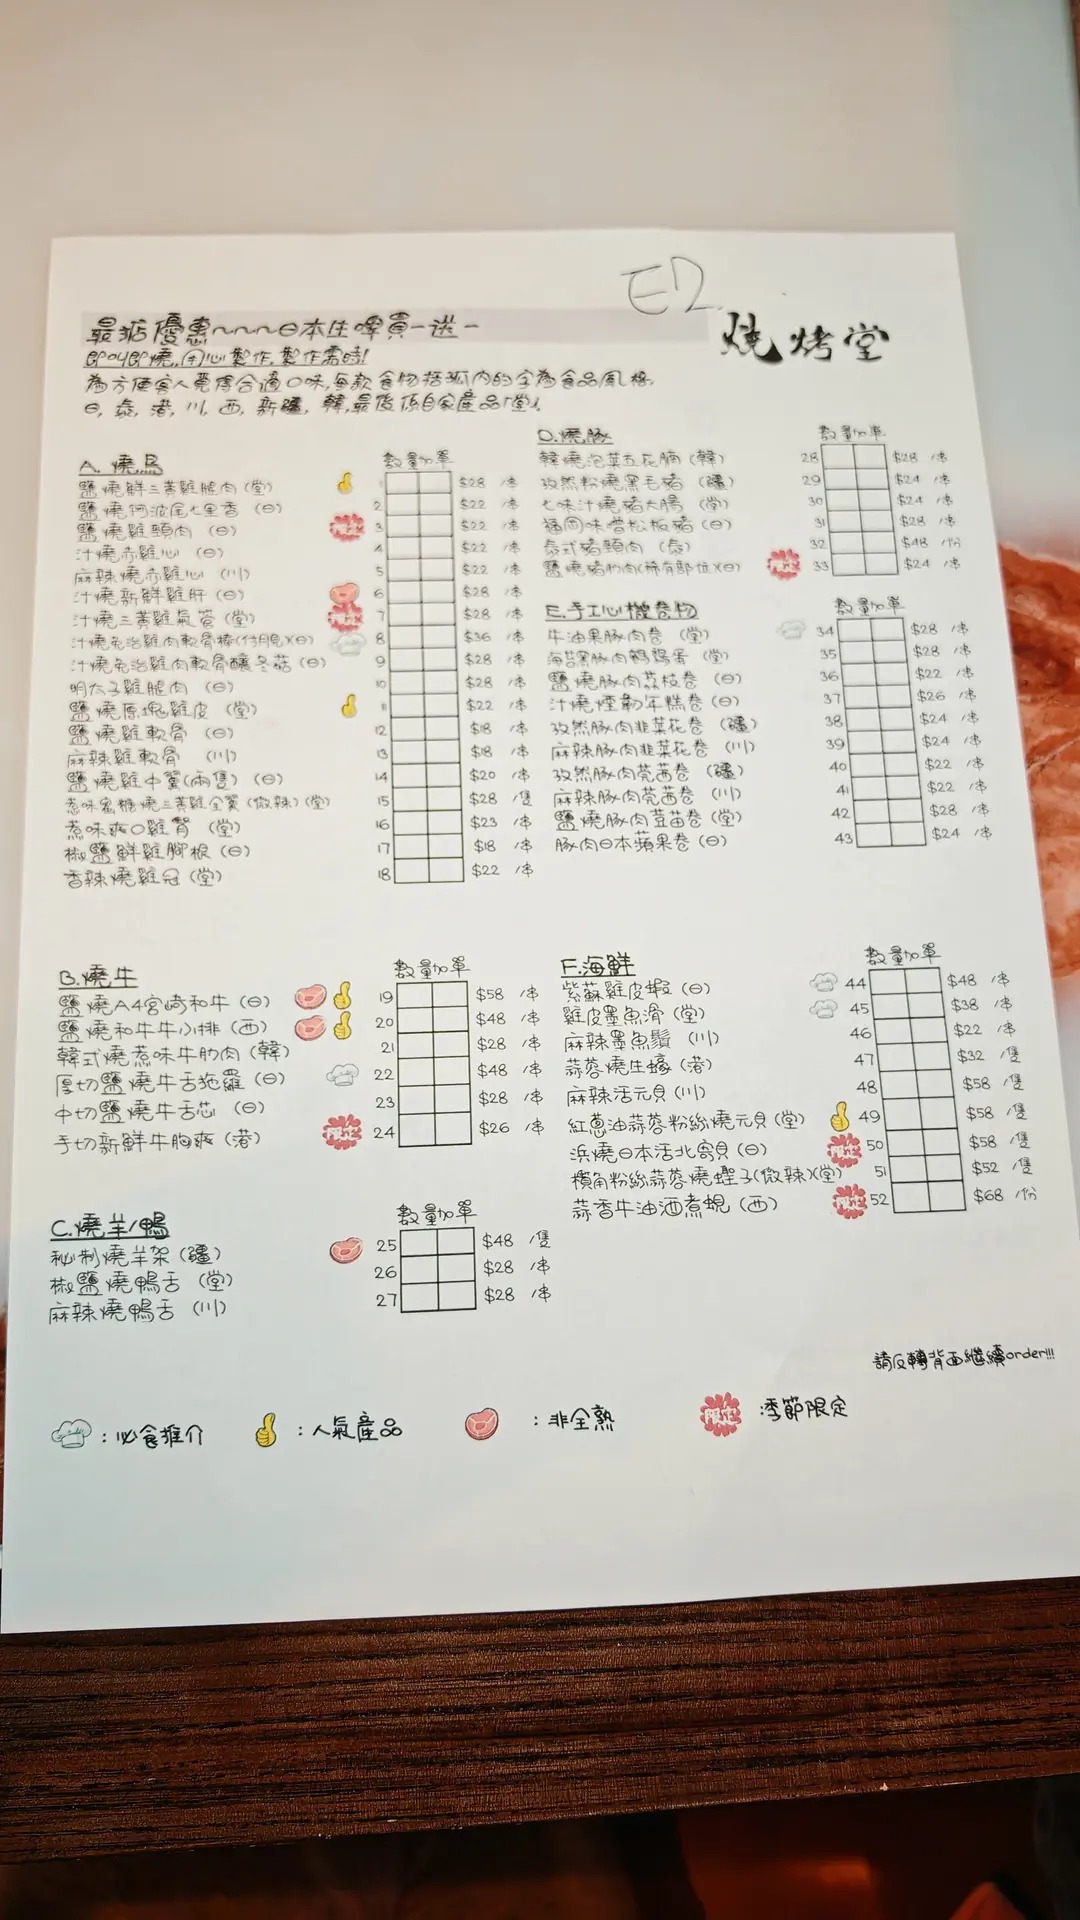 E2
燒烤堂
最掂優惠~~~~日本生啤買一送一
即叫即燒,用心製作,製作需時!
為方便客人覺得合適口味,每款食物括弧內的字為食品風格,
日, 泰, 港, 川, 西, 新疆, 韓,最後係自家產品「堂」
A. 燒鳥 數量 加單
鹽燒鮮三黃雞腿肉 (堂) 1 $28 /串
鹽燒阿波尾七里香 (日) 2 $22 /串
鹽燒雞頸肉 (日) 限定 3 $22 /串
汁燒赤雞心 (日) 4 $22 /串
麻辣燒赤雞心 (川) 5 $22 /串
汁燒新鮮雞肝 (日) 6 $28 /串
汁燒三黃雞氣管 (堂) 限定 7 $28 /串
汁燒免治雞肉軟骨棒(付月見)(日) 8 $36 /串
汁燒免治雞肉軟骨釀冬菇 (日) 9 $28 /串
明太子雞腿肉 (日) 10 $28 /串
鹽燒原塊雞皮 (堂) 11 $22 /串
鹽燒雞軟骨 (日) 12 $18 /串
麻辣雞軟骨 (川) 13 $18 /串
鹽燒雞中翼(兩隻) (日) 14 $20 /串
惹味蜜糖燒三黃雞全翼 (微辣) (堂) 15 $28 /隻
惹味爽口雞腎 (堂) 16 $23 /串
椒鹽鮮雞腳根 (日) 17 $18 /串
香辣燒雞冠 (堂) 18 $22 /串
B.燒牛 數量 加單
鹽燒A4宮崎和牛 (日) 19 $58 /串
鹽燒和牛牛小排 (西) 20 $48 /串
韓式燒惹味牛肋肉 (韓) 21 $28 /串
厚切鹽燒牛舌拖羅 (日) 22 $48 /串
中切鹽燒牛舌芯 (日) 23 $28 /串
手切新鮮牛胸爽 (港) 限定 24 $26 /串
C.燒羊/鴨 數量 加單
秘制燒羊架 (疆) 25 $48 /隻
椒鹽燒鴨舌 (堂) 26 $28 /串
麻辣燒鴨舌 (川) 27 $28 /串
D.燒豚 數量 加單
韓燒泡菜五花腩 (韓) 28 $28 /串
孜然粉燒黑毛豬 (疆) 29 $24 /串
七味汁燒豬大腸 (堂) 30 $24 /串
福岡味噌松板豬 (日) 31 $28 /串
泰式豬頸肉 (泰) 32 $48 /份
鹽燒豬肋肉(稀有部位)(日) 限定 33 $24 /串
E.手工心機卷物 數量 加單
牛油果豚肉卷 (堂) 34 $28 /串
海苔黑豚肉鵪鶉蛋 (堂) 35 $28 /串
鹽燒豚肉荔枝卷 (日) 36 $22 /串
汁燒煙韌年糕卷 (日) 37 $26 /串
孜然豚肉韭菜花卷 (疆) 38 $24 /串
麻辣豚肉韭菜花卷 (川) 39 $24 /串
孜然豚肉芫茜卷 (疆) 40 $22 /串
麻辣豚肉芫茜卷 (川) 41 $22 /串
鹽燒豚肉荳苗卷 (堂) 42 $28 /串
豚肉日本蘋果卷 (日) 43 $24 /串
F.海鮮 數量 加單
紫蘇雞皮蝦 (日) 44 $48 /串
雞皮墨魚滑 (堂) 45 $38 /串
麻辣墨魚鬚 (川) 46 $22 /串
蒜蓉燒生蠔 (港) 47 $32 /隻
麻辣活元貝 (川) 48 $58 /隻
紅蔥油蒜蓉粉絲燒元貝 (堂) 49 $58 /隻
浜燒日本活北寄貝 (日) 限定 50 $58 /隻
欖角粉絲蒜蓉燒蟶子(微辣)(堂) 51 $52 /隻
蒜香牛油酒煮蜆 (西) 限定 52 $68 /份
請反轉背面繼續order!!!
:必食推介 :人氣產品 :非全熟 限定 :季節限定